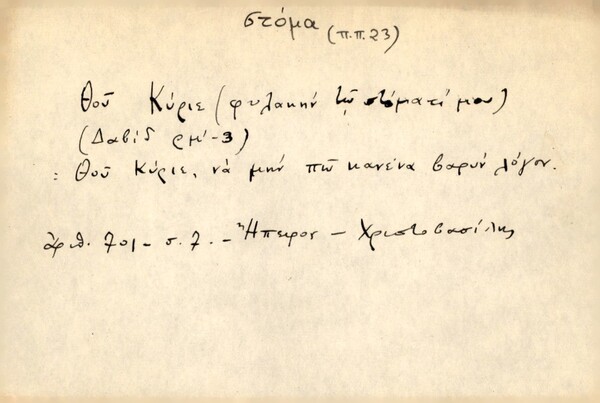 στόμα (π.π.23)
Θοῦ Κύριε (φυλακὴν τῷ στόματί μου)
(Δαβὶδ ρμ΄-3)
: Θοῦ Κύριε, νὰ μὴν πῶ κανένα βαρὺν λόγον.
ἀριθ. 701 - σ. 7. - Ἤπειρος - Χριστοβασίλης